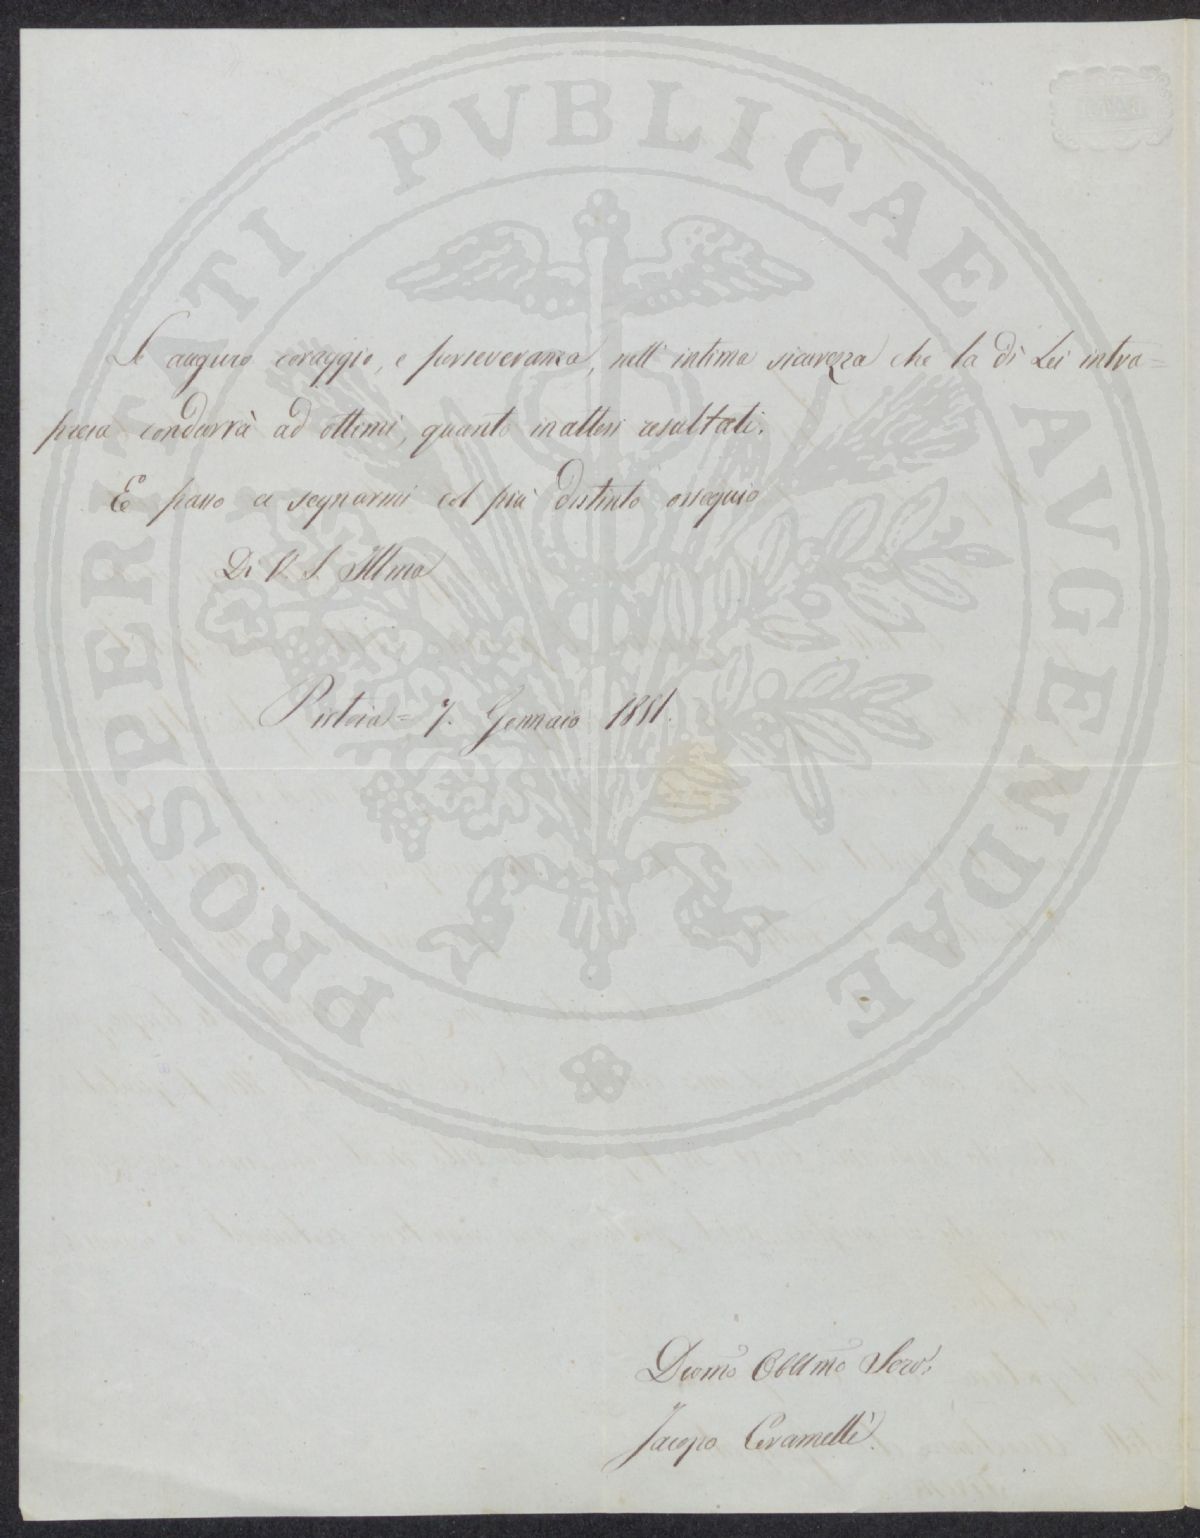 PROSPERITATI PVBLICAE AVGENDAE
Le auguro coraggio, e perseveranza, nell' intima sicurezza che la di Lei intra=
presa condurrà ad ottimi, quanto inattesi resultati.
E passo a segnarmi col più distinto ossequio
Di V. S. Illma
Pistoia = 7. Gennaio 1851.
Devmo Obblmo Serv:
Jacopo Ceramelli